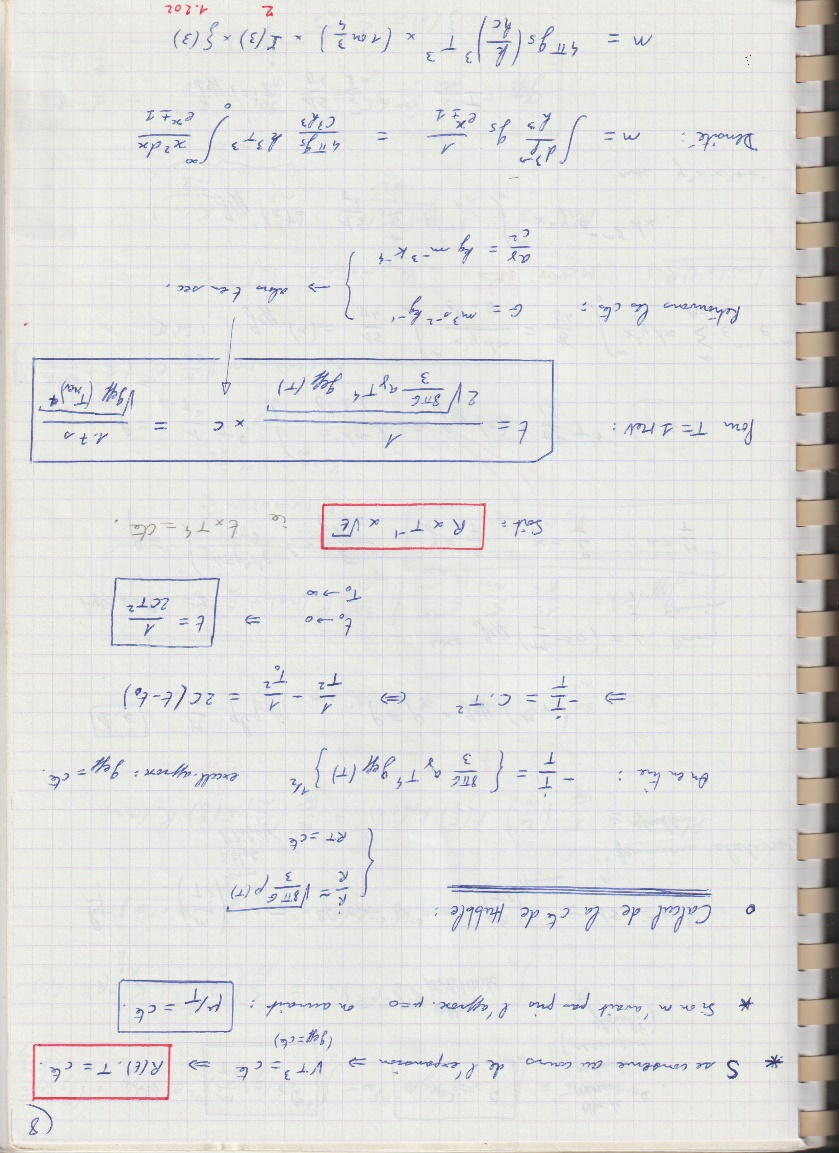 8)
* S se conserve au cours de l'expansion ⇒ VT³ = cte ⇒ R(t).T = cte.
(geff = cte)
* Si on n'avait pas pris l'approx. μ=0 on aurait : μ/T = cte.
o Calcul de la cte de Hubble : { Ṙ/R ≈ √(8πG/3 ρ(T))
RT = cte
On en tire : -Ṫ/T = { 8πG/3 aγ T⁴ geff(T) }^1/2 excell. approx : geff = cte.
⇒ -Ṫ/T = C.T² ⇔ 1/T² - 1/T₀² = 2C(t-t₀)
t₀→0
T₀→∞ ⇒ t = 1/2CT²
Soit : R ∝ T⁻¹ ∝ √t ie t×T⁴ = cte.
Pour T = 1 MeV : t = 1/(2√(8πG/3 aγT⁴ geff(T))) × c = 1.7 s/√geff(T MeV)⁴
Retrouvons les ctes : { G = m³s⁻²kg⁻¹
aγ/c² = kg m⁻³ K⁻⁴ ⇒ alors t en sec.
Densité : n = ∫ d³p/h³ gs 1/(eˣ±1) = 4πgs/c³h³ k³T³ ∫₀^∞ x²dx/(eˣ±1)
n = 4πgs (k/hc)³ T³ × (1 ou 3/4) × Γ(3) × ζ(3)
2 1.202